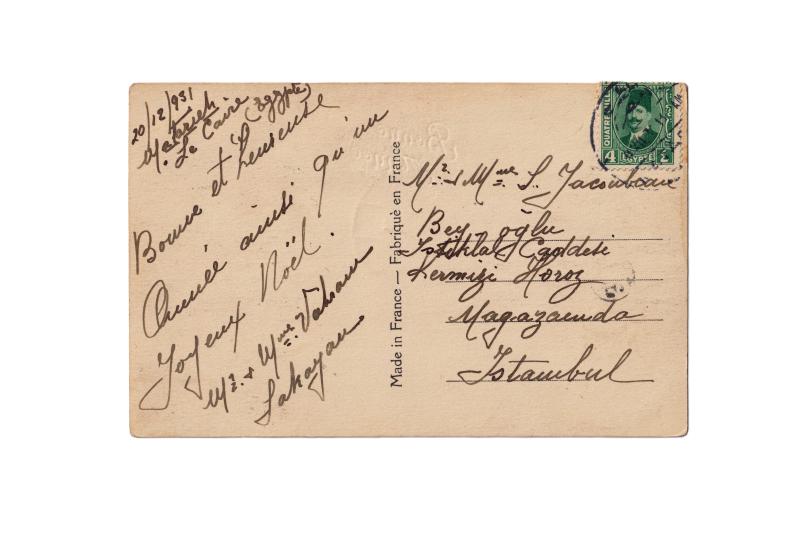 20/12/931
Matarieh
Le Caire (Egypte)
Bonne et heureuse
Année ainsi qu'un
Joyeux Noël.
Mr. & Mme Vahram
Made in France — Fabriqué en France
QUATRE MILLS
4
EGYPTE
٤
Mr. & Mme S.
Bey oğlu
Istiklal Caddesi
Kermizi Horoz
Magazaenda
Istambul